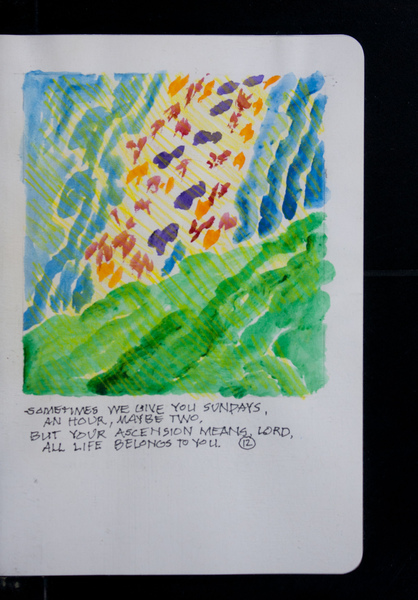 SOMETIMES WE GIVE YOU SUNDAYS,
AN HOUR, MAYBE TWO,
BUT YOUR ASCENSION MEANS, LORD,
ALL LIFE BELONGS TO YOU. 12